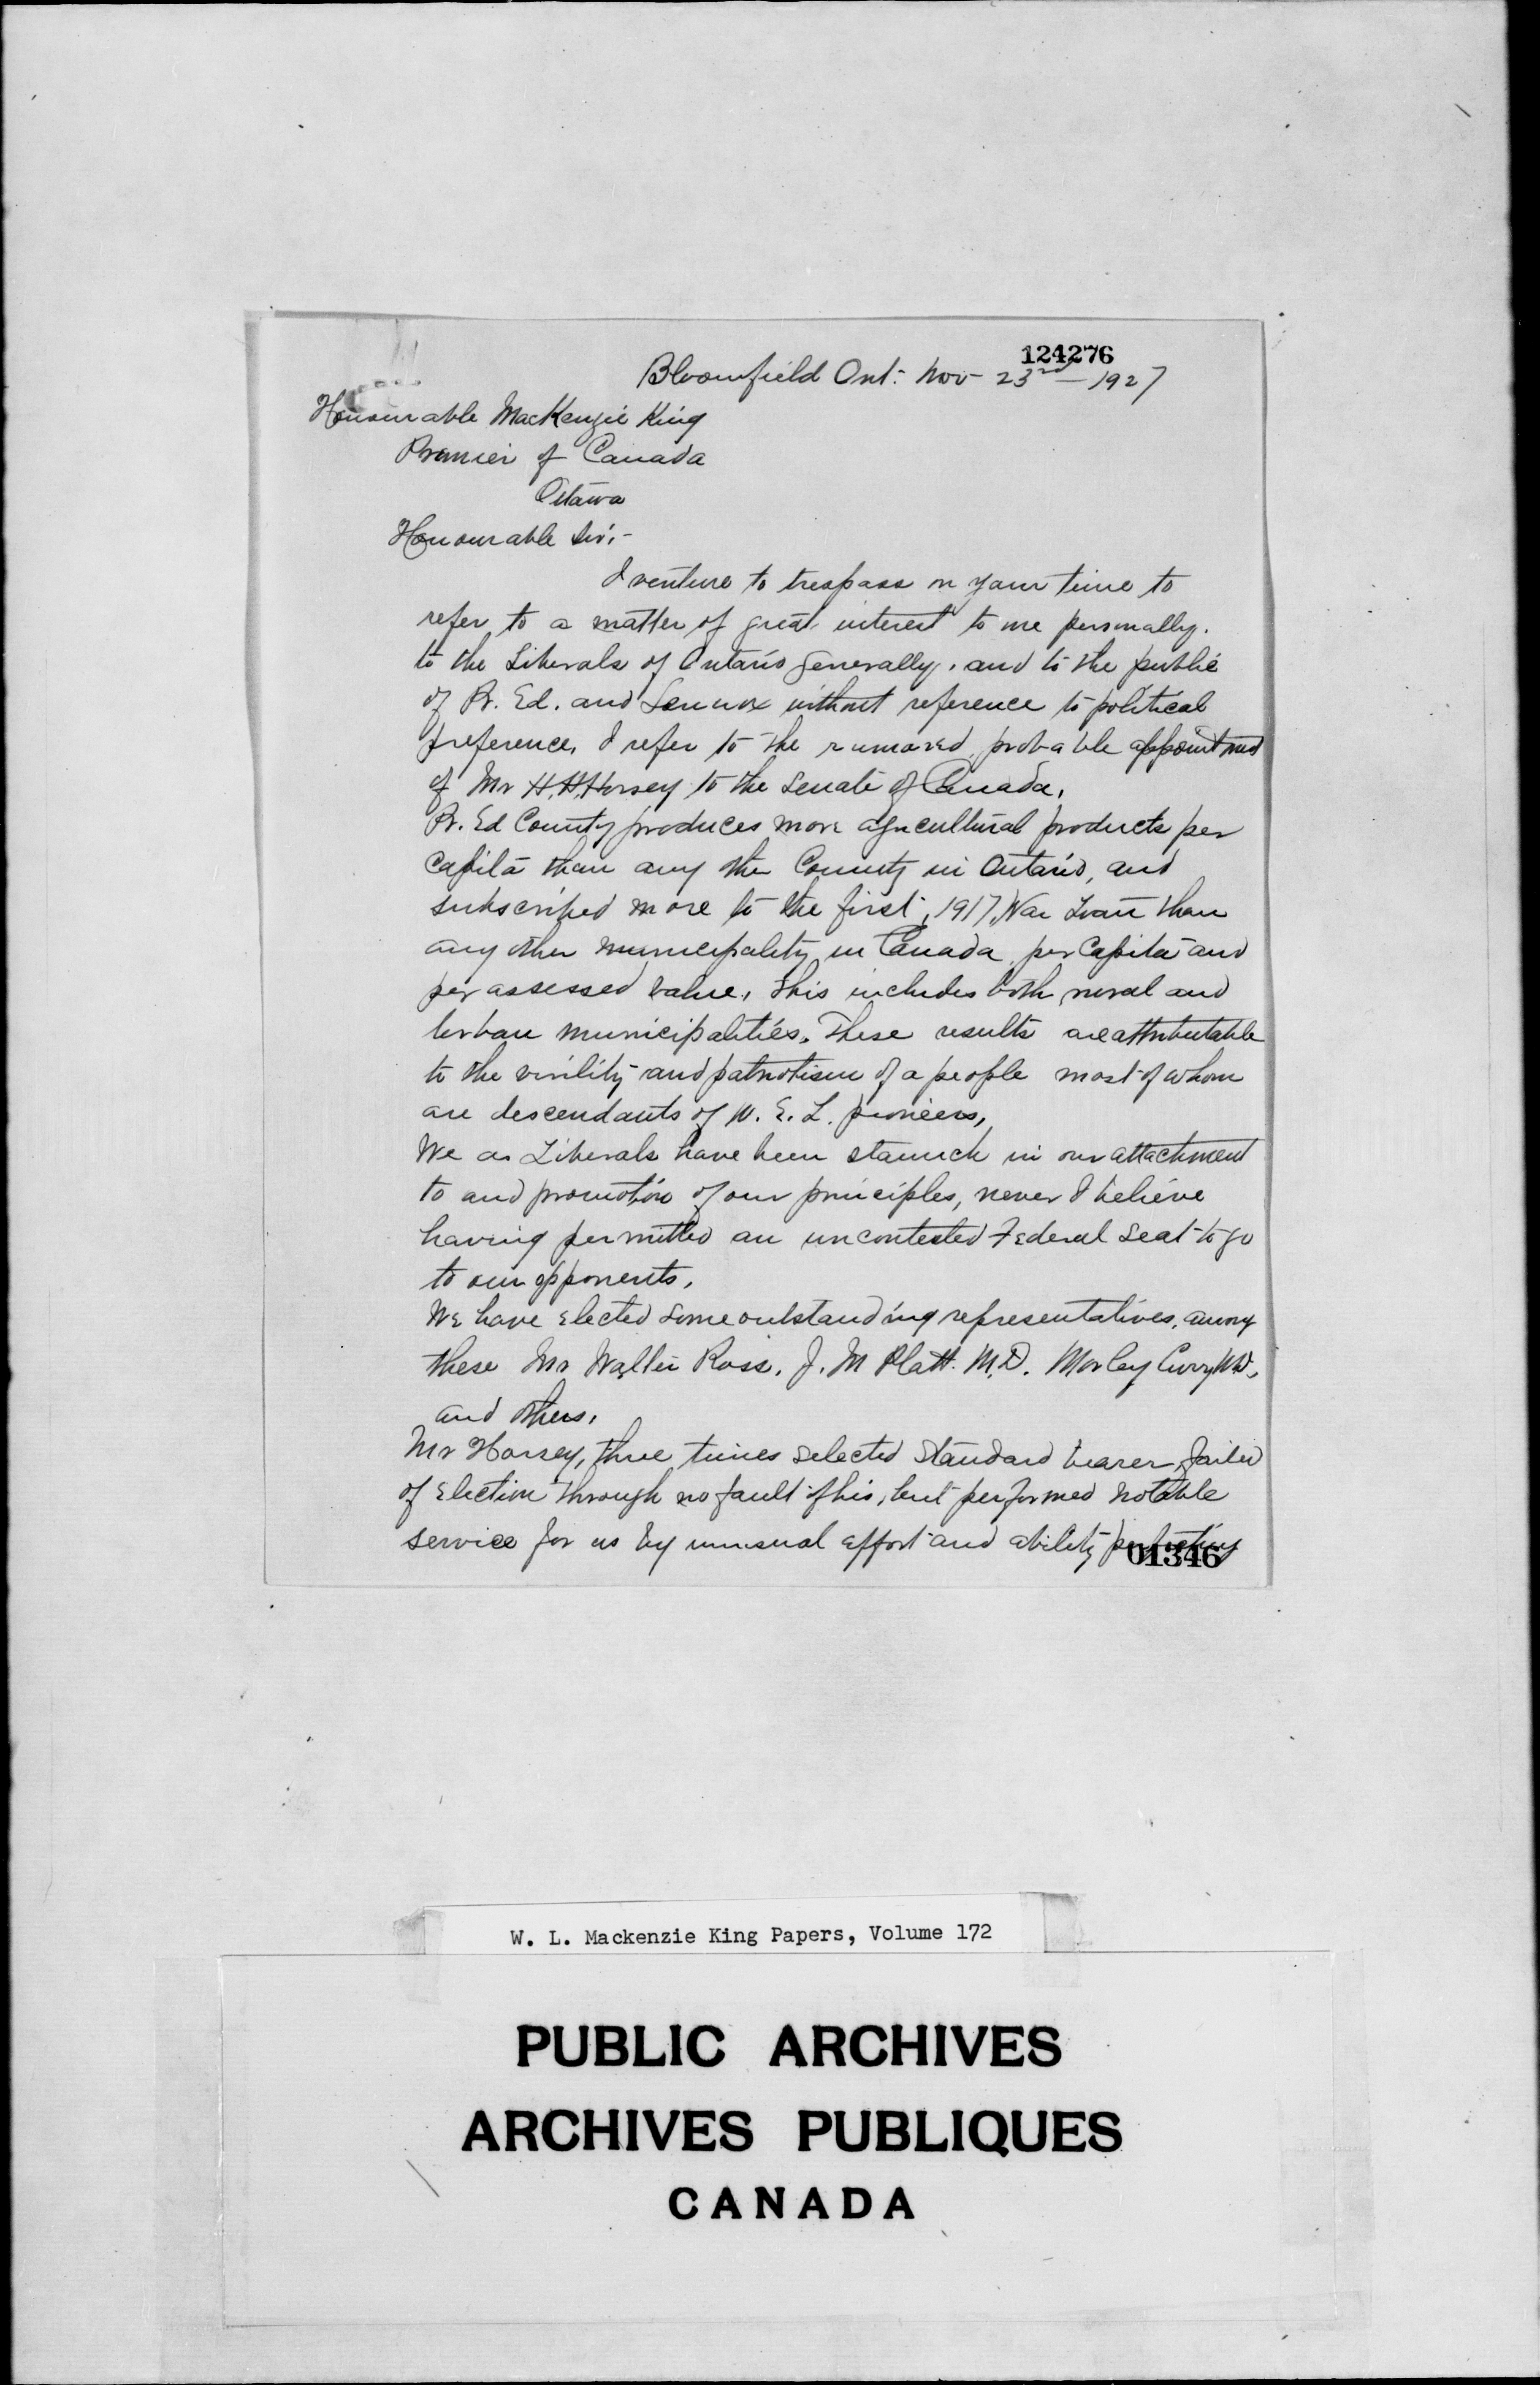 124276
Bloomfield Ont: Nov 23rd - 1927
Honourable MacKenzie King
Premier of Canada
Ottawa
Honourable Sir:-
I venture to trespass on your time to
refer to a matter of great interest to me personally.
to the Liberals of Ontario generally, and to the public
of Pr. Ed. and Lennox without reference to political
preference. I refer to the rumored probable appointment
of Mr H.H. Horsey to the Senate of Canada.
Pr. Ed County produces more agricultural products per
Capita than any other County in Ontario, and
subscribed more to the first, 1917, War Loan than
any other municipality in Canada, per Capita and
per assessed value, this includes both rural and
urban municipalities. These results are attributable
to the virility and patriotism of a people most of whom
are descendants of U. E. L. pioneers,
We as Liberals have been staunch in our attachment
to and promotion of our principles, never I believe
having permitted an uncontested Federal Seat to go
to our opponents.
We have elected some outstanding representatives, among
these Mr Walter Ross, J. M Platt. M.D. Morley Curry M.D.,
and others.
Mr Horsey, three times selected standard bearer, failed
of election through no fault of his, but performed notable
service for us by unusual effort and ability
01346
W. L. Mackenzie King Papers, Volume 172
PUBLIC ARCHIVES
ARCHIVES PUBLIQUES
CANADA